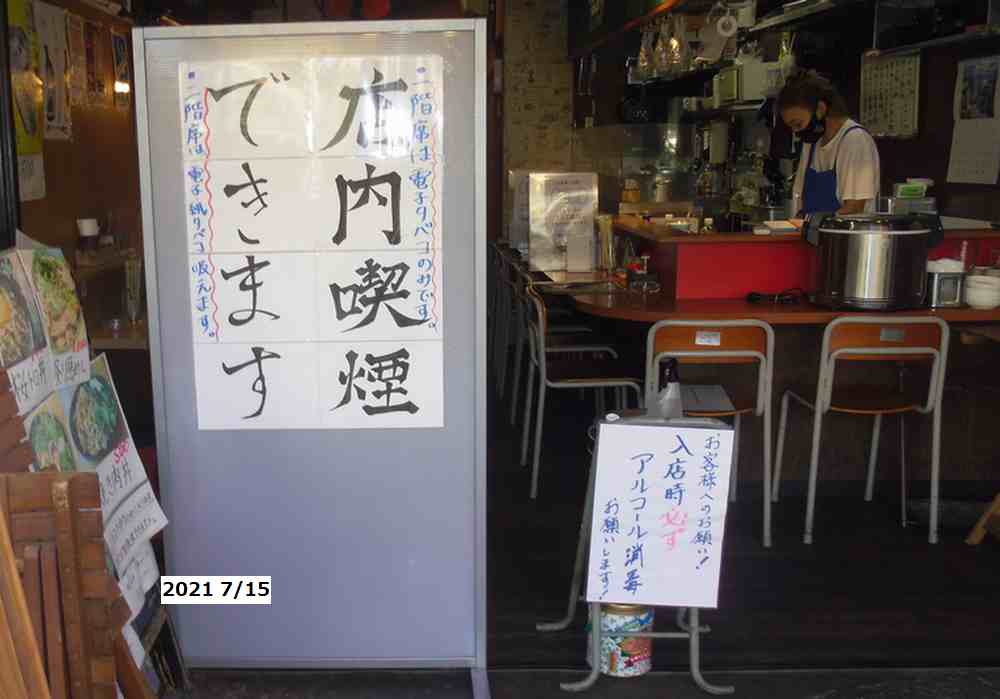 店内喫煙
できます
二階席は電子タバコのみです。
一階席は電子、紙タバコ吸えます。
お客様へのお願い!
入店時必ず
アルコール消毒
お願いします!
2021 7/15